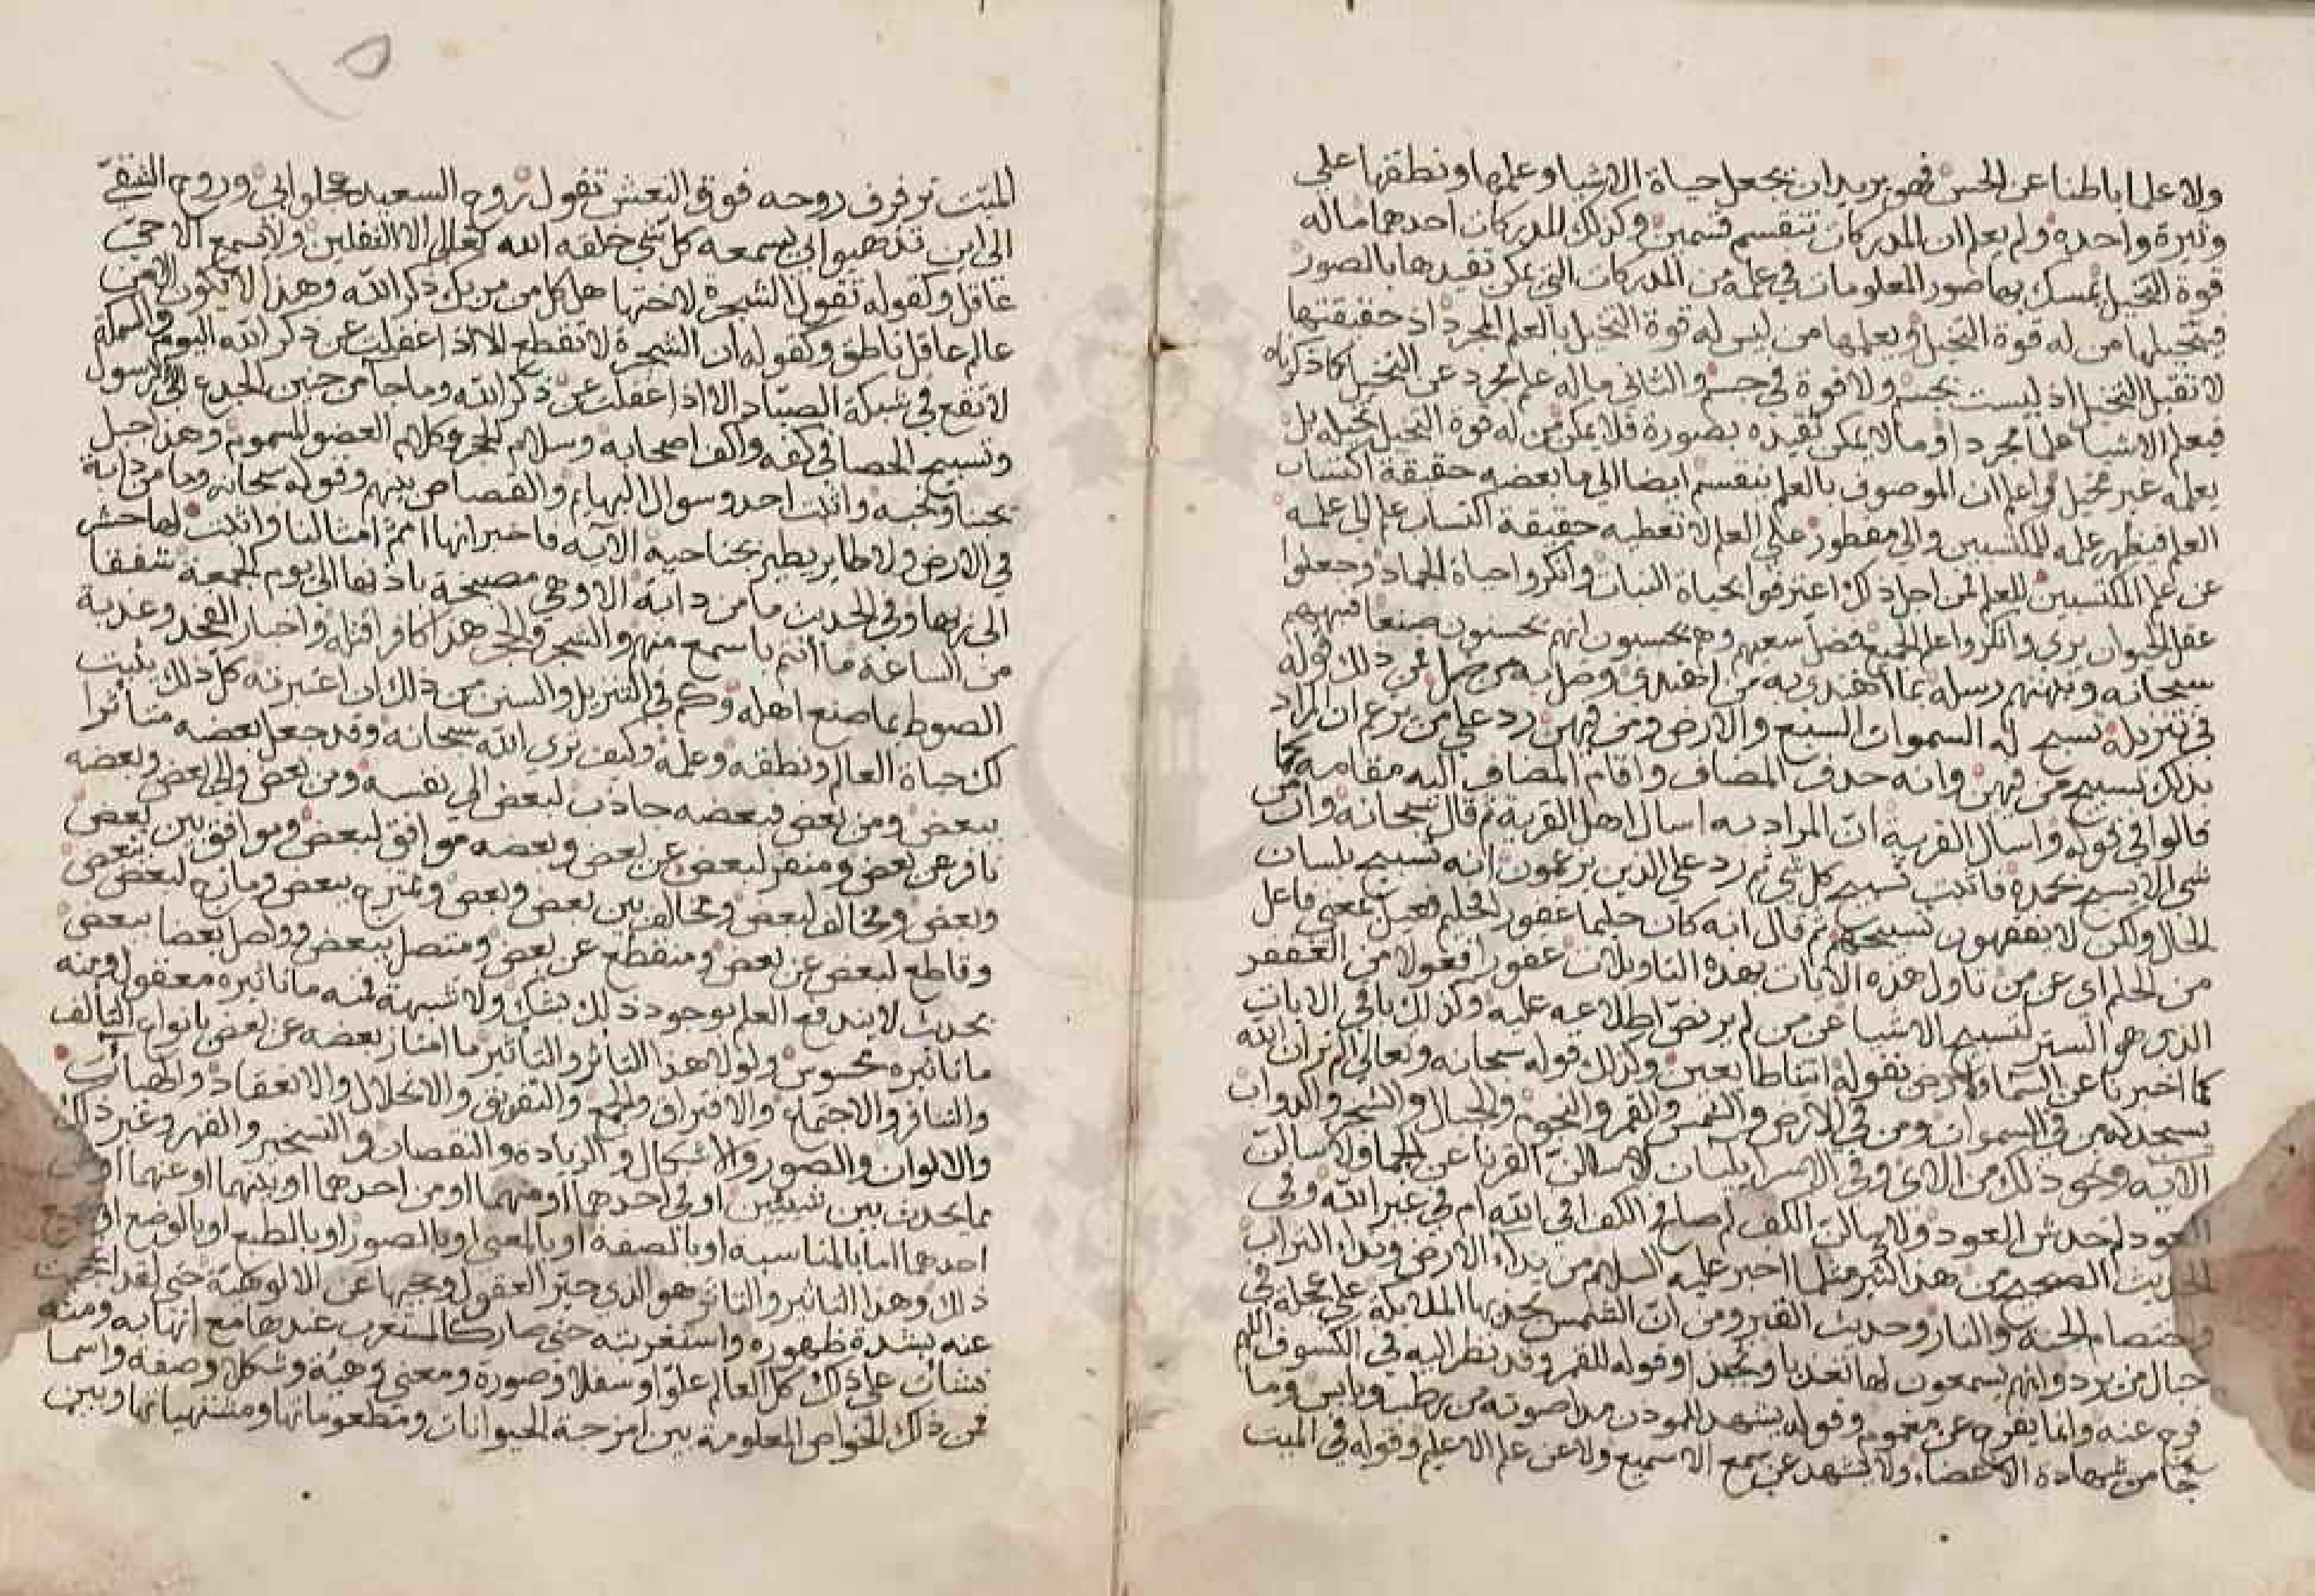 ولا علما باطنا عن الحس فهو يريد ان يجعل حياة الاشيا وعلمها ونطقها على
وتيرة واحدة ولم يعلم ان المدركات تنقسم قسمين وكذلك المدركات احدهما ما له
قوة التخيل يمسك بها صور المعلومات في علمه من المدركات التي يمكن تقيدها بالصور
فيتخيلها من له قوة التخيل ويعلمها من ليس له قوة التخيل بالعلم المجرد اذ حقيقتها
لا تقبل التخيل اذ ليست بجسم ولا قوة في جسم والثاني ما له علم مجرد عن التخيل كما ذكرناه
فيعلم الاشيا علما مجردا وما لا يمكن تقيده بصورة فلا يمكن من له قوة التخيل تخيله بل
يعلمه غير مخيل واعلم ان الموصوف بالعلم ينقسم ايضا الى ما بعضه حقيقة اكتساب
العلم فيظهر علمه للمكتسبين والى مفطور على العلم لا تعطيه حقيقة اكتساب علم الى علمه
عن علم المكتسبين للعلم فمن اجل ذلك اعترفوا بحياة النبات وانكروا حياة الجماد وجعلوا
عقل الحيوان بري وانكروا علم الجميع فضل سعيهم وهم يحسبون انهم يحسنون صنعا فنبههم
سبحانه ونبهتهم رسله بما اهتدى به من اهتدى وضل به من ضل فمن ذلك قوله
في تنزيله تسبح له السموات السبع والارض ومن فيهن رد على من يزعم ان المراد
بذلك تسبيح من فيهن وانه حذف المضاف واقام المضاف اليه مقامه كما
قالوا في قوله واسال القرية ان المراد به اسال اهل القرية ثم قال سبحانه وان من
شي الا يسبح بحمده فاثبت تسبيح كل شي ثم رد على الذين يزعمون انه تسبيح بلسان
الحال ولكن لا تفقهون تسبيحهم ثم قال انه كان حليما غفورا فحليم فعيل بمعنى فاعل
من الحلم اي عن من تاول هذه الايات بهذه التاويلات غفورا فعولا من الغفر
الذي هو الستر لتسبيح الاشيا عن من لم يرتض اطلاعه عليه وكذلك باقي الايات
كما اخبرنا عن السما والارض بقوله اتينا طايعين وكذلك قوله سبحانه وتعالى الم تر ان الله
يسجد له من في السموات ومن في الارض والشمس والقمر والنجوم والجبال والشجر والدواب
الاية ونحو ذلك من الاي وفي الاسرا بلسان لاسالن القرنا عن الجما ولاسالن
العود لم خدش العود ولاسالن الكف لم صافح الكف افي الله ام في غير الله وفي
الحديث الصحيح من هذا كثير مثل اخبر عليه السلام من نداء الارض ونداء التراب
واختصام الجنة والنار وحديث القبر ومن ان الشمس يجذبها الملايكة على عجلة في
جبال من برد وانهم يسمعون لها تغذيا وتجذرا وقوله للقمر وقد نظر اليه في الكسوف اللهم
فرج عنه وانما يفرج عن مغموم وقوله يشهد للموذن مدا صوته من رطب ويابس وما
جا من شهادة الاعضاء ولا يشهد عن سمع الا سميع ولا عن علم الا عليم وقوله في الميت
الميت ترفرف روحه فوق النعش تقول روح السعيد عجلوا بي وروح الشقي
الى اين تذهبوا بي يسمعه كل شي خلقه الله تعالى الا الثقلين ولا يسمع الا حي
عاقل وكقوله تقول الشجرة لاختها هل كان من مر بك ذكر الله وهذا لا يكون الا من
عالم عاقل ناطق وكقوله ان الشجرة لا تقطع الا اذا غفلت عن ذكر الله اليوم والسمكة
لا تقع في شبكة الصياد الا اذا غفلت عن ذكر الله وما جا من حنين الجذع الى الرسول
وتسبيح الحصا في كفه واكف اصحابه وسلام الحجر وكلام العضو المسموم وهذا جبل
يحبنا ونحبه واثبت احد وسوال البهايم والقصاص بينهم وقوله سبحانه وما من دابة
في الارض ولا طاير يطير بجناحيه الاية فاخبر انها امم امثالنا واثبت لها حشر
الى ربها وفي الحديث ما من دابة الا وهي مصيخة باذنها الى يوم الجمعة شفقا
من الساعة ما انتم باسمع منهم والشجر والحجر هذا كافر اقتله واخبار الفخذ وعذبة
الصوط بما صنع اهله وكم في التنزيل والسنن من ذلك ان اعتبرته كل ذلك يثبت
لك حياة العالم ونطقه وعلمه وكيف ترى الله سبحانه وقد جعل بعضه متاثرا
ببعض ومن بعض فبعضه جاذب لبعض الى نفسه ومن بعض والى بعض وبعضه
نافر عن بعض ومنفر لبعض عن بعض وبعضه موافق لبعض وموافق بين بعض
وبعض ومخالف لبعض ومخالف بين بعض وبعض وممتزج ببعض ومازج لبعض ببعض
وقاطع لبعض عن بعض ومنقطع عن بعض ومتصل ببعض وواصل بعضا ببعض
بحيث لا يندفع العلم بوجود ذلك بشك ولا شبهة فمنه ما تاثيره معقول ومنه
ما تاثيره محسوس ولولا هذا التاثر والتاثير ما امتاز بعضه عن بعض بانواع التالف
والتنافر والاجتماع والافتراق والجمع والتفريق والانحلال والانعقاد والهيات
والالوان والصور والاشكال والزيادة والنقصان والتسخير والقهر وغير ذلك
مما يحدث بين شيئين او في احدهما او منهما او من احدهما او بينهما او عنهما او عن
احدهما اما بالمناسبة او بالصفة او بالمعنى او بالصور او بالطبع او بالوضع او
ذلك وهذا التاثير والتاثر هو الذي حير العقول وحجبها عن الالوهية حتى لقد
عنه بشدة ظهوره واستغربته حتى صار كالمستغرب عندها مع انها به ومنه
نشات على ذلك كل العالم علوا وسفلا وصورة ومعنى وهية وشكلا وصفة واسما
فمن ذلك الخواص المعلومة بين امزجة الحيوانات ومطعوماتها ومشتهياتها وبين